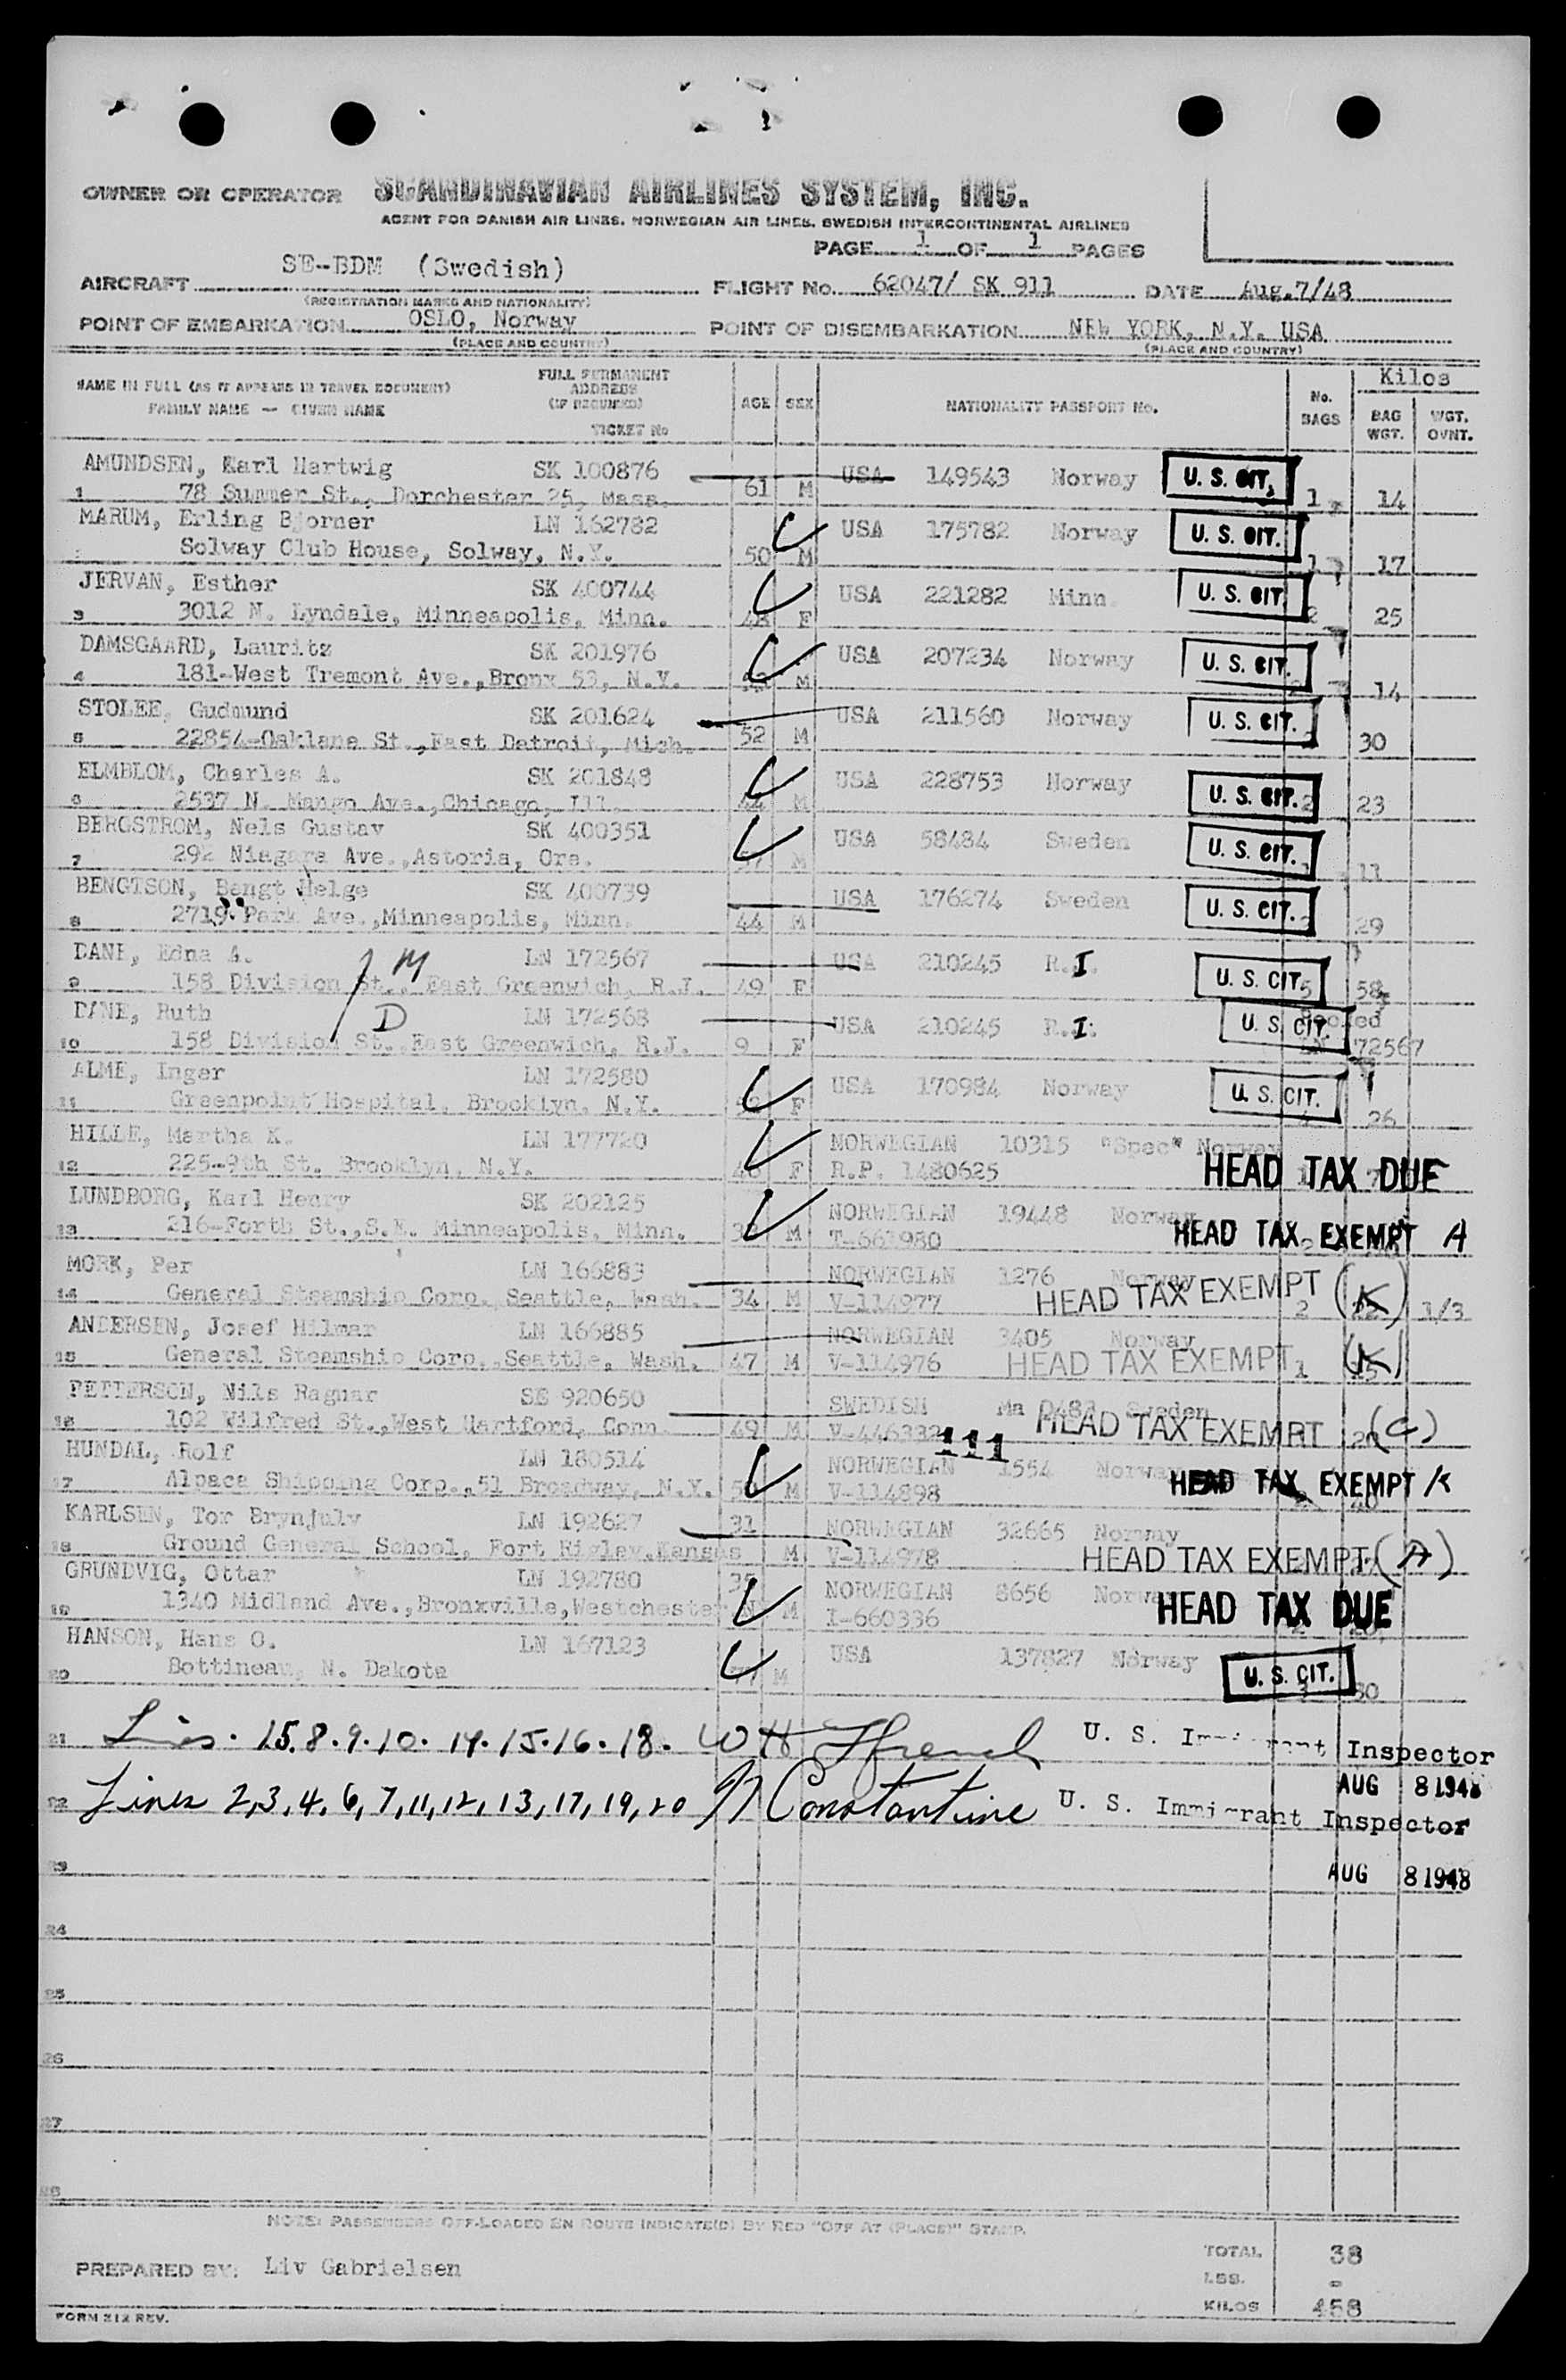 OWNER OR OPERATOR SCANDINAVIAN AIRLINES SYSTEM, INC.
AGENT FOR DANISH AIR LINES. NORWEGIAN AIR LINES. SWEDISH INTERCONTINENTAL AIRLINES
PAGE 1 OF 1 PAGES
AIRCRAFT SE-BDM (Swedish) FLIGHT No. 62047/ SK 911 DATE Aug.7/48
(REGISTRATION MARKS AND NATIONALITY)
POINT OF EMBARKATION OSLO, Norway POINT OF DISEMBARKATION NEW YORK, N.Y. USA
(PLACE AND COUNTRY) (PLACE AND COUNTRY)
NAME IN FULL (AS IT APPEARS IN TRAVEL DOCUMENT) FULL PERMANENT ADDRESS (IF REQUIRED) AGE SEX NATIONALITY PASSPORT No. No. BAGS Kilos
FAMILY NAME — GIVEN NAME TICKET No BAG WGT. WGT. OVNT.
AMUNDSEN, Karl Hartwig SK 100876 USA 149543 Norway U. S. CIT.
1 78 Summer St., Dorchester 25, Mass. 61 M 1 14
MARUM, Erling Bjorner LN 162782 USA 175782 Norway U. S. CIT.
Solway Club House, Solway, N.Y. 50 M 1 17
JERVAN, Esther SK 400744 USA 221282 Minn. U. S. CIT
3 3012 N. Lyndale, Minneapolis, Minn. 48 F 2 25
DAMSGAARD, Lauritz SK 201976 USA 207234 Norway U. S. CIT.
4 181-West Tremont Ave.,Bronx 53, N.Y. M 14
STOLEE, Gudmund SK 201624 USA 211560 Norway U. S. CIT.
5 22854-Oaklane St.,East Detroit, Mich. 52 M 30
ELMBLOM, Charles A. SK 201848 USA 228753 Norway U. S. CIT.
6 2537 N. Mango Ave.,Chicago, Ill. 44 M 2 23
BERGSTROM, Nels Gustav SK 400351 USA 58484 Sweden U. S. CIT.
7 292 Niagara Ave.,Astoria, Ore. 57 M 11
BENGTSON, Bengt Helge SK 400739 USA 176274 Sweden U. S. CIT.
8 2719 Park Ave.,Minneapolis, Minn. 44 M 29
DANE, Edna A. LN 172567 USA 210245 R.I. U. S. CIT.
9 158 Division St., East Greenwich, R.I. 49 F 5 58
M
DANE, Ruth LN 172568 USA 210245 R.I. U. S. CIT.
D
10 158 Division St. East Greenwich, R.I. 9 F 72567
ALME, Inger LN 172580 USA 170984 Norway U. S. CIT.
11 Greenpoint Hospital, Brooklyn, N.Y. F 26
HILLE, Martha K. LN 177720 NORWEGIAN 10315 "Spec" Norway
12 225-9th St. Brooklyn, N.Y. 46 F R.P. 1480625 HEAD TAX DUE
LUNDBORG, Karl Henry SK 202125 NORWEGIAN 19448 Norway
13 216-Forth St.,S.E. Minneapolis, Minn. M T-661980 HEAD TAX EXEMPT A
MORK, Per LN 166883 NORWEGIAN 1276 Norway
14 General Steamship Corp. Seattle, Wash. 34 M V-114977 HEAD TAX EXEMPT 2 (K) 1/3
ANDERSEN, Josef Hilmar LN 166885 NORWEGIAN 3405 Norway
15 General Steamship Corp.,Seattle, Wash. 47 M V-114976 HEAD TAX EXEMPT 1 (K)
PETTERSON, Nils Ragnar SE 920650 SWEDISH Ma Sweden
16 102 Wilfred St.,West Hartford, Conn. 49 M V-446332 HEAD TAX EXEMPT (C)
111
HUNDAL, Rolf LN 180514 NORWEGIAN 1554 Norway
17 Alpaca Shipping Corp.,51 Broadway, N.Y. M V-114898 HEAD TAX EXEMPT K
KARLSEN, Tor Brynjulv LN 192627 31 NORWEGIAN 32665 Norway
18 Ground General School, Fort Rigley,Kansas M V-114978 HEAD TAX EXEMPT (A)
GRUNDVIG, Ottar LN 192780 35 NORWEGIAN 8656 Norway
19 1340 Midland Ave.,Bronxville,Westchester N M I-660336 HEAD TAX DUE
HANSON, Hans O. LN 167123 USA 137827 Norway
20 Bottineau, N. Dakota 77 M U. S. CIT. 30
21 Lines. 1.5.8.9.10. 14.15.16.18. W H French U. S. Immigrant Inspector
AUG 8 1948
22 Lines 2,3,4,6,7,11,12,13,17,19,20 N Constantine U. S. Immigrant Inspector
23 AUG 8 1948
24
25
26
27
28
NOTE: PASSENGERS OFF-LOADED EN ROUTE INDICATE(D) BY RED "OFF AT (PLACE)" STAMP.
TOTAL 38
PREPARED BY: Liv Gabrielsen
LBS. -
KILOS 458
FORM 212 REV.